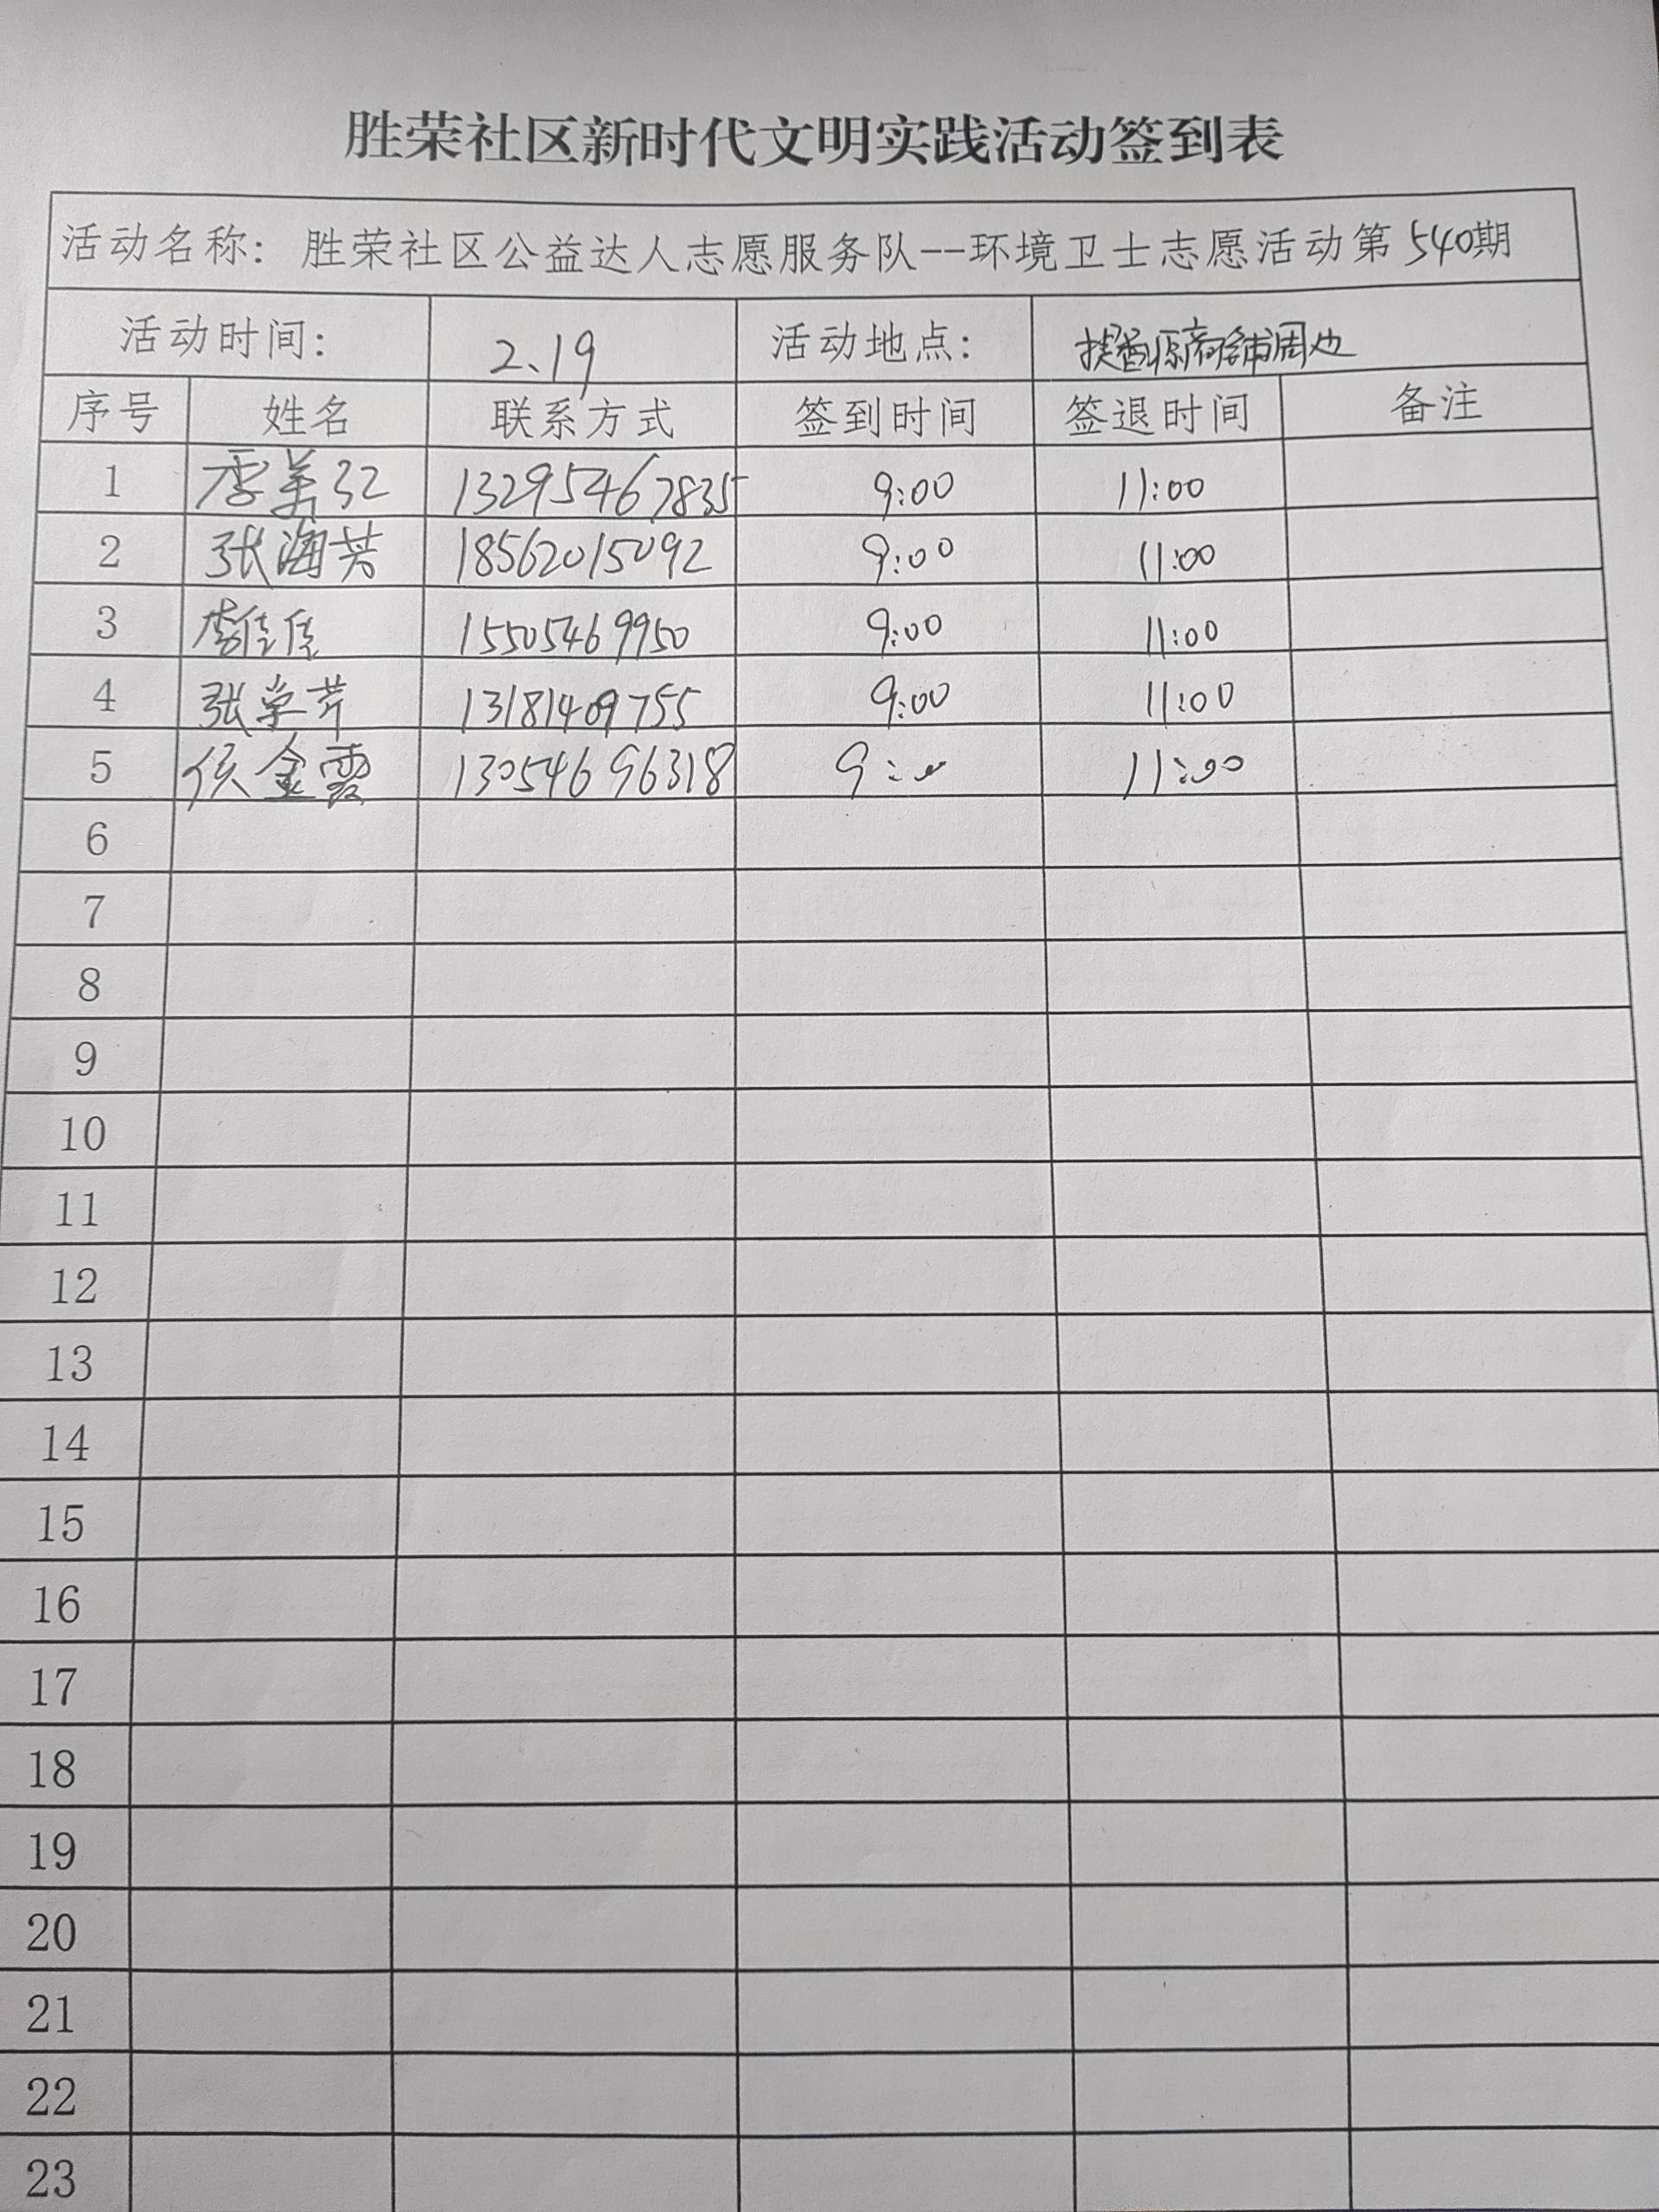 胜荣社区新时代文明实践活动签到表
活动名称：胜荣社区公益达人志愿服务队--环境卫士志愿活动第540期
活动时间： 2、19 活动地点： 商铺周边
序号 姓名 联系方式 签到时间 签退时间 备注
1 季美红 13295467835 9:00 11:00
2 张海芸 18562015092 9:00 11:00
3 李佳佳 15505469950 9:00 11:00
4 张学芹 13181409755 9:00 11:00
5 侯金霞 13054696318 9:00 11:00
6
7
8
9
10
11
12
13
14
15
16
17
18
19
20
21
22
23